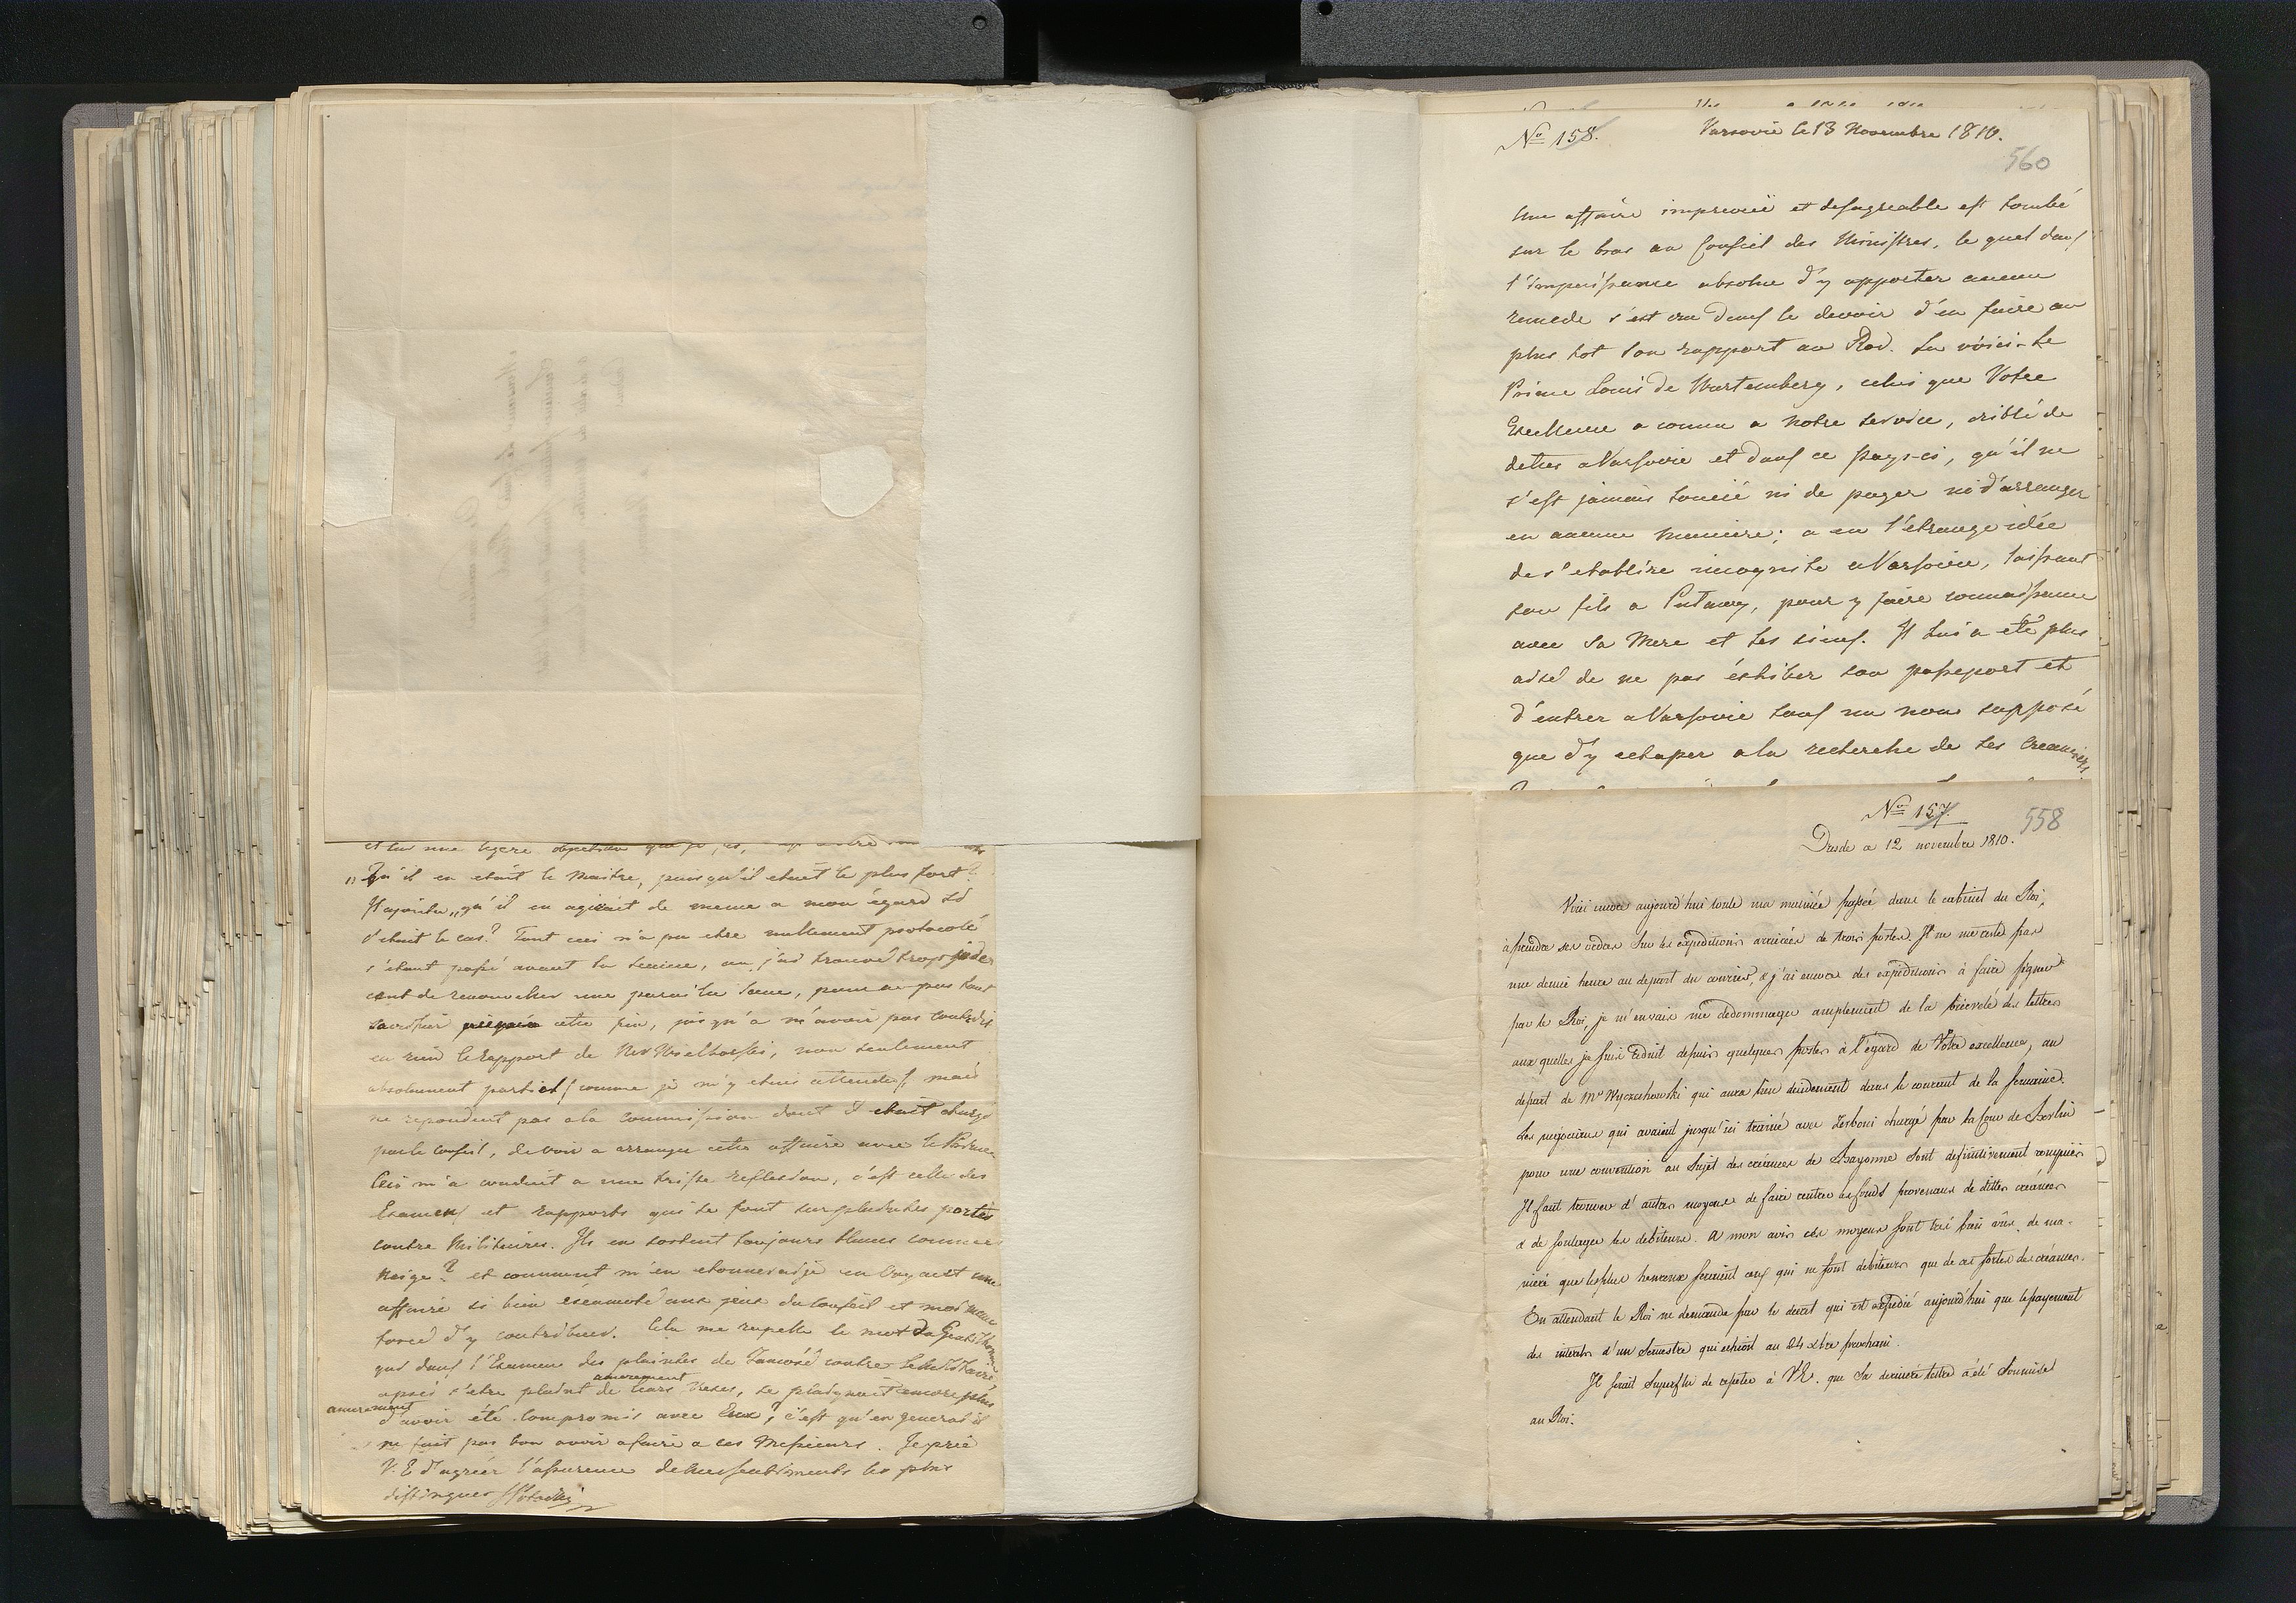 Qu'il en etait le Maitre, puisqu'il etait le plus fort?
Il ajouta „qu'il en agirait de meme a mon égard si
s'etait le cas? Tout ceci n'a pu etre nullement protocolé
s'etant passé avant la Seance, ou j'ai trouvé trop
de renouveller une pareille Scene, pour ne pas tout
sacrifier cette fin, jusqu'a n'avoir pas contredit
en rien le rapport de Mr Wielhorski, non seulement
absolument partiel (comme je m'y etais attendu) mais
ne repondent pas a la commission dont il etait chargé
par le Conseil, de voir a arranger cette affaire avec le
Ceci m'a conduit a une triste reflexion, c'est celle des
Examens et rapports qui se font sur plaintes portés
contre Militaires. Ils en sortent toujours blancs comme
Neige? et comment m'en etonnerai je en voyant une
affaire si bien escamoté aux yeux du Conseil et moi meme
forcé d'y contribuer. Cela me rapelle le mot de
qui dans l'Examen des plaintes de Zamosc contre
amerement
apres s'etre plaint de leurs Vexes, se plaignait encore plus
amerement
d'avoir été compromis avec Eux?, c'est qu'en general il
ne fait pas bon avoir afaire a ces Messieurs. Je prie
V. E d'agréer l'assurence de mes sentiments les plus
distingués
No 158.
Varsovie le 13 Novembre 1810.
560
Une affaire imprevuë et desagreable est tombé
sur le bras au Conseil des Ministres, le quel dans
l'impuissance absolue d'y apporter aucun
remede s'est cru dans le devoir d'en faire au
plus tot son rapport au Roi. La voici. Le
Prince Louis de Wurtemberg, celui que Votre
Excellence a connu a notre service, criblé de
dettes a Varsovie et dans ce pays-ci, qu'il ne
s'est jamais soucié ni de payer ni d'arranger
en aucune maniere; a eu l'etrange idée
de s'etablire incognito a Varsovie, laissant
son fils a Pulawy, pour y faire connaissance
avec sa Mere et les siens. Il lui a eté plus
aisé de ne pas éxhiber son passeport et
d'entrer a Varsovie sous un nom supposé
que d'y echaper a la recherche de ses Creanciers.
No 157.
558
Dresde a 12 novembre 1810.
Voici encore aujourd'hui toute ma matinée passée dans le cabinet du Roi,
à prendre ses ordres sur les expeditions arrivées de trois postes. Il ne me reste pas
une demie heure au depart du courier, & j'ai encore des expeditions à faire signer
par le Roi, je m'en vais me dedommager amplement de la brieveté des lettres
aux quelles je suis reduit depuis quelques postes à l'égard de Votre excellence, au
depart de Mr Wyczechowski qui aura lieu decidement dans le courant de la semaine.
Les negociations qui avaient jusqu'ici trainé avec Zerboni chargé par la Cour de Berlin
pour une convention au sujet des créances de Bayonne sont definitivement rompues.
Il faut trouver d'autres moyens de faire rentrer les fonds provenans de dittes créances
& de soulager les debiteurs. A mon avis ces moyens sont très bien aisés, de ma-
niere que les plus heureux seraient ceux qui ne sont debiteurs que de ces sortes de créances.
En attendant le Roi ne demande par le decret qui est expedié aujourd'hui que le payement
des interets d'un Semestre qui echoit au 24 xbre prochain.
Il serait superflu de repeter à V.E. que sa derniere lettre a été soumise
au Roi.